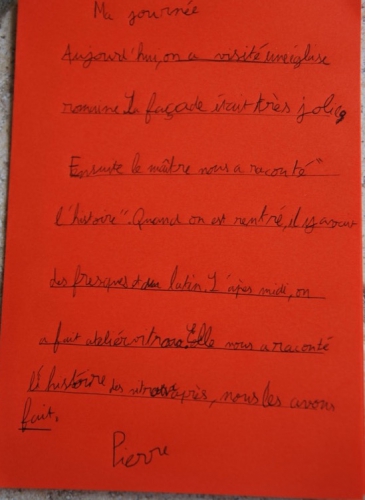 Ma journée
Aujourd'hui, on a visité une église
romane. La façade était très jolie,
Ensuite le maître nous a raconté "
l'histoire". Quand on est rentré, il y avait
des fresques et du latin. L'après midi, on
a fait Elle nous a raconté
l'histoire des après, nous les avons
fait.
Pierre